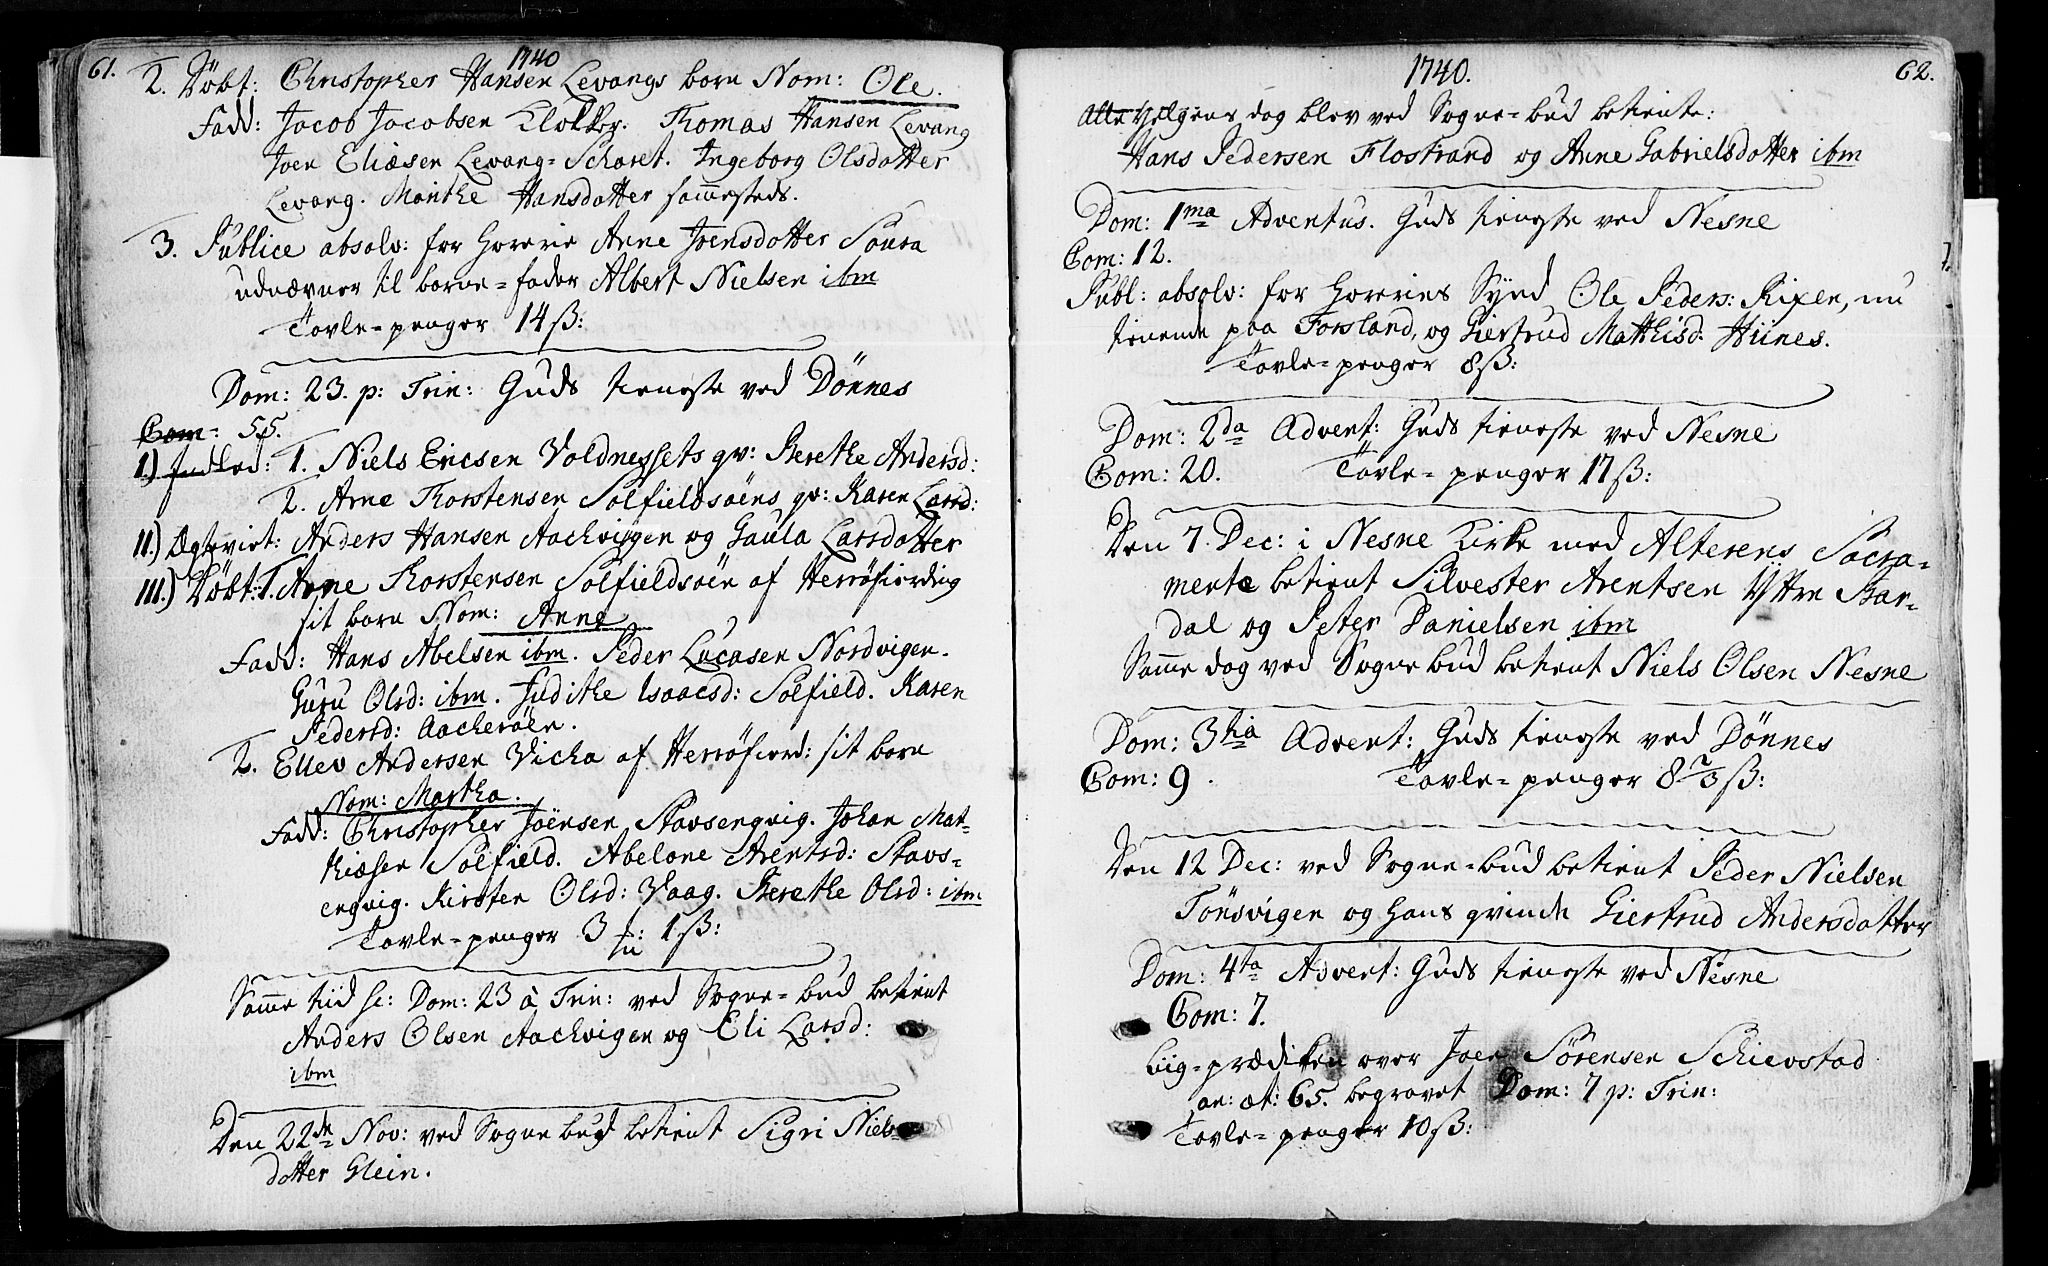 61.
1740
2. Döbt: Christopher Hansen Levangs barn Nom: Ole.
Fadd: Jacob Jacobsen Klokker. Thomas Hansen Levang
Joen Eliæsen Levang=Schoret. Ingeborg Olsdatter
Levang. Marithe Hansdatter sammesteds.
3. Publice absolv: for horerie Anne Joensdotter Soura
udnævner til barne=fader Albert Nielsen ibm
Tavle=penger 14 ß:
Dom: 23. p: Trin: Guds tieneste ved Dönnes
Com: 55.
I.) Indled: 1. Niels Ericsen Voldnessets qv: Berethe Andersd:
2. Arne Thorstensen Solfieldsöens qv: Karen Larsd:
II.) Ægteviet: Anders Hansen Aachvigen og Gaula Larsdotter
III.) Döbt: 1. Arne Thorstensen Solfieldsöen af Herröfierding
sit barn Nom: Anne
Fadd: Hans Abelsen ibm. Peder Lucasen Nordvigen.
Guru Olsd: ibm. Judithe Isaacsd: Solfield. Karen
Pedersd: Aacheröen.
2. Ellev Andersen Vicha af Herröfierd: sit barn
Nom: Martha.
Fadd: Christopher Joensen Stavsengvig. Johan Mat-
thiæsen Solfield. Abelone Arentsd: Stavs-
engvig. Kirsten Olsd: Vaag. Berethe Olsd: ibm
Tavle=penger 3 1 ß:
Samme tiid sc: Dom: 23 à Trin: ved Sogne=bud betient
Anders Olsen Aachvigen og Eli Larsd:
ibm
Den 22de Nov: ved Sognebud betient Sigri Niels
dotter Glein.
1740.
62.
Alle Helgens dag blev ved Sogne=bud betiente:
Hans Pedersen Flostrand og Anne Gabrielsdotter ibm
Dom: 1ma Adventus. Guds tieneste ved Nesne
Com: 12.
Publ: absolv: for horeries Synd Ole Peders: Rixen, nu
tienende paa Forsland, og Giertrud Matthisd: Hiines.
Tavle=penger 8 ß:
Dom: 2da Advent: Guds tieneste ved Nesne
Com: 20. Tavle=penger 17 ß:
Den 7. Dec: i Nesne Kirke med Alterens Sacra-
mente betient Silvester Arentsen Yttre Bar-
dal og Peter Danielsen ibm
Samme dag ved Sognebud betient Niels Olsen Nesne
Dom: 3tia Advent: Guds tieneste ved Dönnes
Com: 9. Tavle=penger 8 2/3 ß:
Den 12 Dec: ved Sogne=bud betient Peder Nielsen
Tönsvigen og hans qvinde Giertrud Andersdatter
Dom: 4ta Advent: Guds tieneste ved Nesne
Com: 7.
Liig=prædiken over Joen Sörensen Schievstad
an: æt: 65. begravet Dom: 7 p: Trin:
Tavle=penger 10 ß: